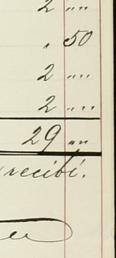 2 " "
" 50
2 " "
2 " "
29 " "
recibí.